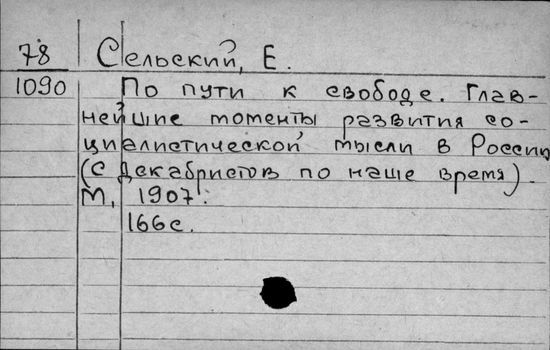 78 Сельский, Е.
1090 По пути к свободе. Глав-
нейшие моменты развития со-
циалистической мысли в России
(с декабристов по наше время).
М., 1907.
166с.